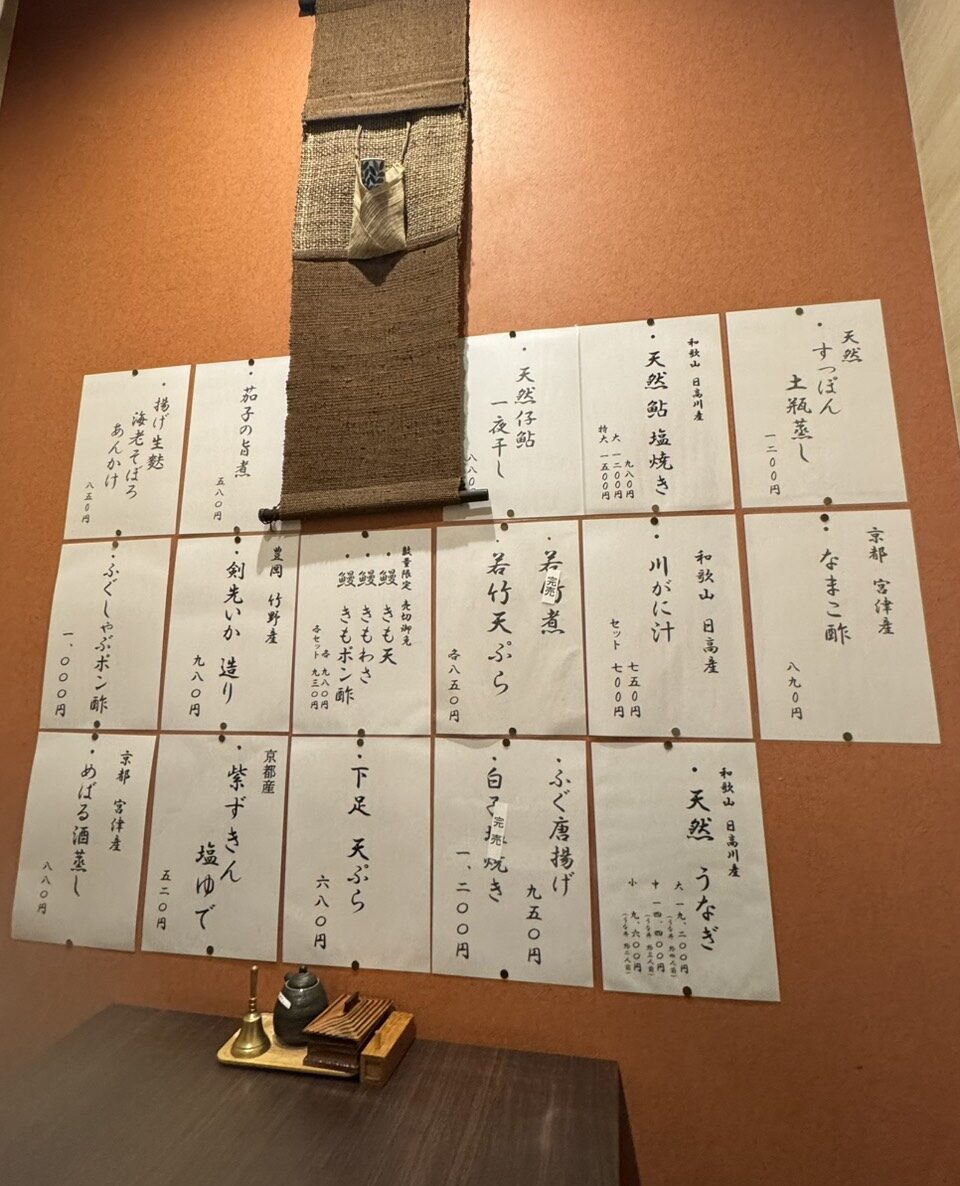 天然
・すっぽん
土瓶蒸し
一二〇〇円
和歌山 日高川産
・天然鮎 塩焼き
九八〇円
大 一二〇〇円
特大 一五〇〇円
・天然仔鮎
一夜干し
八八〇
・茄子の旨煮
五八〇円
・揚げ生麩
海老そぼろ
あんかけ
八五〇円
京都 宮津産
・なまこ酢
八九〇円
和歌山 日高産
・川がに汁
七五〇円
セット 七〇〇円
・若
煮
完売
・若竹天ぷら
各八五〇円
数量限定 売切御免
・鰻 きも天
・鰻 きもわさ
・鰻 きもポン酢
各 九八〇円
各セット 九三〇円
豊岡 竹野産
・剣先いか 造り
九八〇円
・ふぐしゃぶポン酢
一、〇〇〇円
和歌山 日高川産
・天然 うなぎ
大 一九、二〇〇円
(うな丼 約四人前)
中 一四、四〇〇円
(うな丼 約三人前)
小 九、六〇〇円
(うな丼 約二人前)
・ふぐ唐揚げ
九五〇円
・白子
焼き
完売
一、二〇〇円
・下足 天ぷら
六八〇円
京都産
・紫ずきん
塩ゆで
五二〇円
京都 宮津産
・めばる酒蒸し
八八〇円